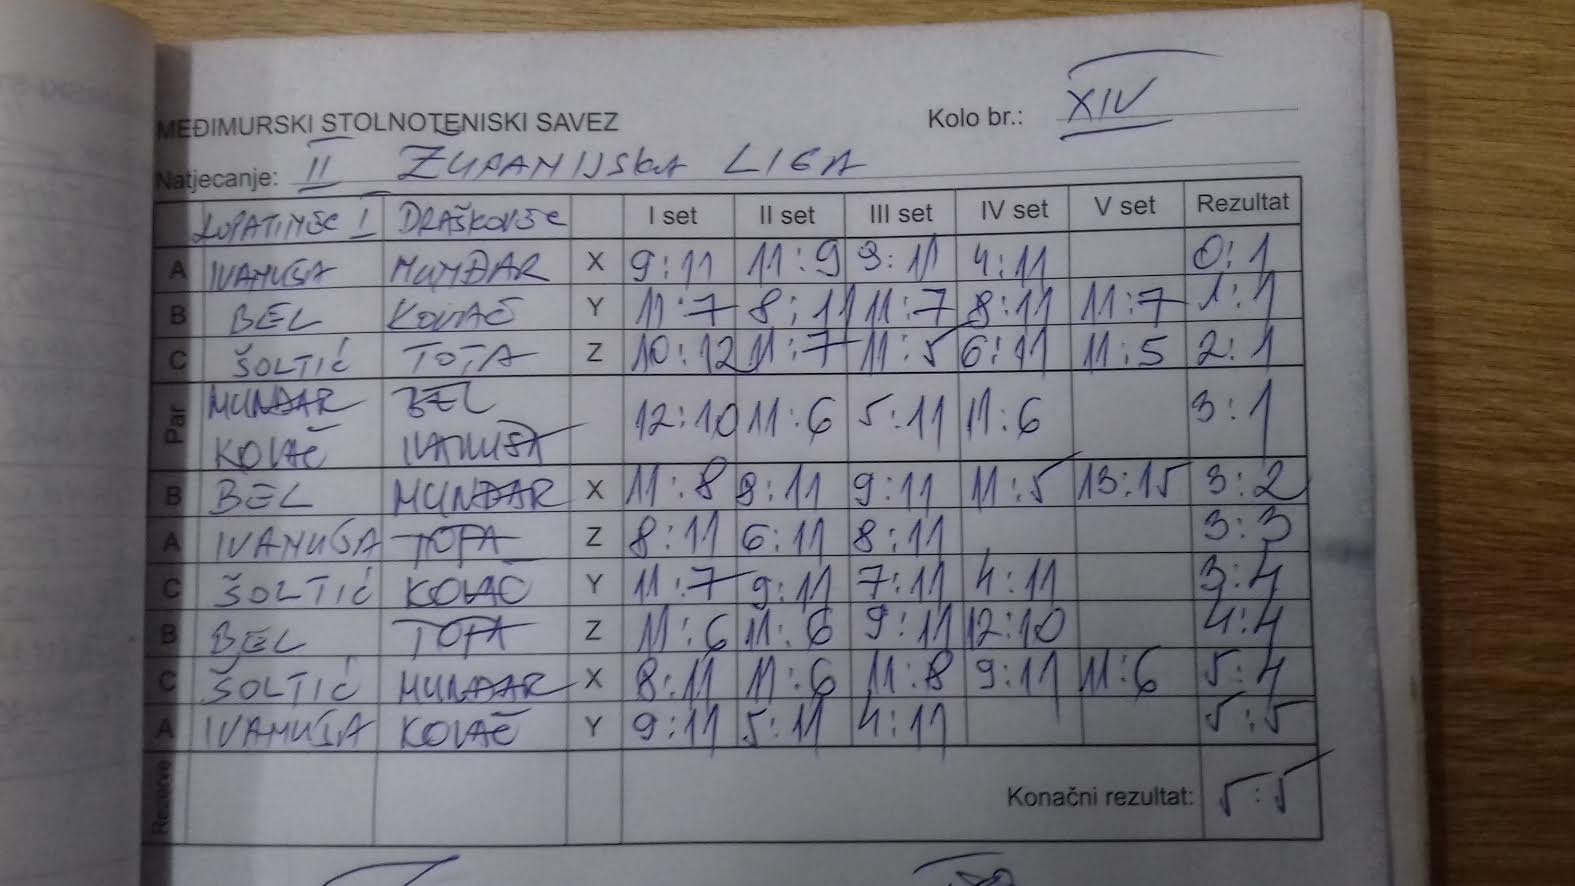 MEĐIMURSKI STOLNOTENISKI SAVEZ
Kolo br.: XIV
Natjecanje: II ŽUPANIJSKA LIGA
LOPATINEC I DRAŠKOVEC I set II set III set IV set V set Rezultat
A IVANUŠA MUNĐAR X 9:11 11:9 9:11 4:11 0:1
B BEL KOVAČ Y 11:7 8:11 11:7 8:11 11:7 1:1
C ŠOLTIĆ TOTA Z 10:12 11:7 11:5 6:11 11:5 2:1
Par MUNĐAR BEL 12:10 11:6 5:11 11:6 3:1
KOVAČ IVANUŠA
B BEL MUNĐAR X 11:8 8:11 9:11 11:5 13:15 3:2
A IVANUŠA TOTA Z 8:11 6:11 8:11 3:3
C ŠOLTIĆ KOVAČ Y 11:7 9:11 7:11 4:11 3:4
B BEL TOTA Z 11:6 11:6 9:11 12:10 4:4
C ŠOLTIĆ MUNĐAR X 8:11 11:6 11:8 9:11 11:6 5:4
A IVANUŠA KOVAČ Y 9:11 5:11 4:11 5:5
Rezerve Konačni rezultat: 5:5